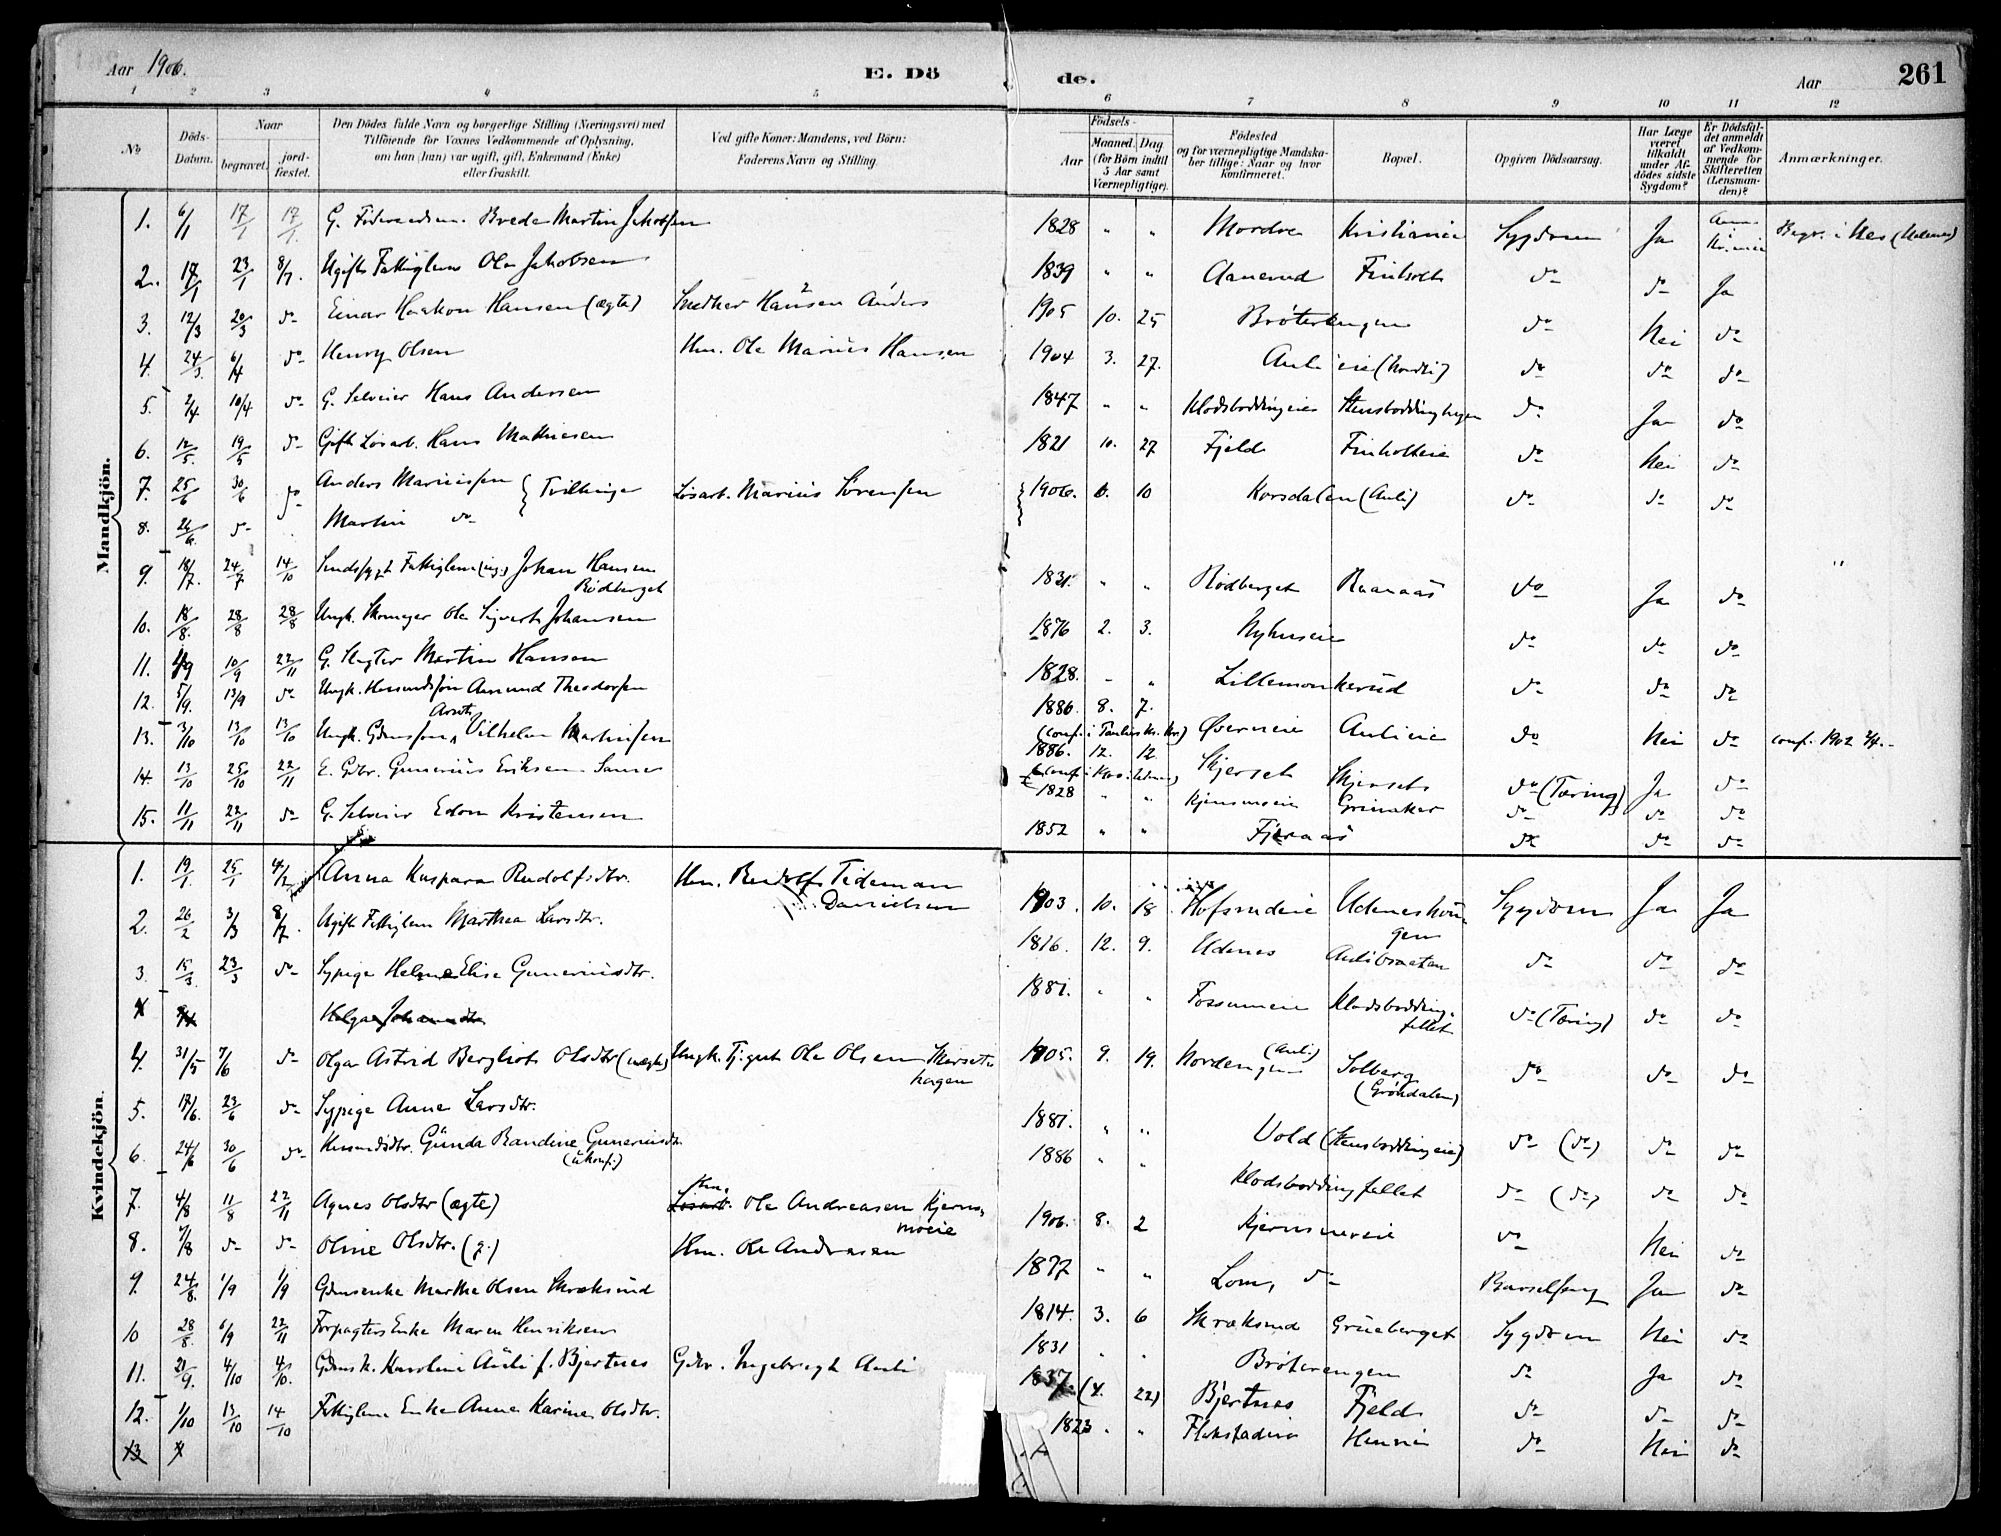 Aar 1906. E. Dö de. Aar 261
1 2 3 4 5 6 7 8 9 10 11 12
No Döds-Datum. Naar begravet. jordfæstet. Den Dödes fulde Navn og borgerlige Stilling (Næringsvei) med Tilföiende for Voxnes Vedkommende af Oplysning, om han (hun) var ugift, gift, Enkemand (Enke) eller fraskilt. Ved gifte Koner: Mandens, ved Börn: Faderens Navn og Stilling. Födsels- Aar Maaned. Dag (for Börn indtil 5 Aar samt Værnepligtige). Födested og for værnepligtige Mandskaber tillige: Naar og hvor Konfirmeret. Bopæl. Opgiven Dödsaarsag. Har Læge været tilkaldt under Afdödes sidste Sygdom? Er Dödsfaldet anmeldt af Vedkommende for Skifteretten (Lensmanden)? Anmærkninger.
Mandkjön.
1. 6/1 17/1 17/1. G. Brede Martin Jakobsen 1828 " " Mordre Kristiania Sygdom Ja
2. 17/1 23/1 8/7. Ugift Fattiglem Ole Jakobsen 1839 " " Aanerud Finholt do do Ja
3. 12/3 20/3 do Einar Haakon Hansen (ægte) Snedker Hansen Anders 1905 10. 25 Bröterengen do Nei do
4. 24/3. 6/4 do Henry Olsen Hm. Ole Marius Hansen 1904 3. 27. do do do
5. 2/4 10/4 do G. Selveier Hans Andersen 1847 " " Klodsboddingeie do. Ja do
6. 12/5. 19/5 do Gift Løsarb. Hans Mathiesen 1821 10. 27 Fjeld Finholteie do Nei do
7. 25/6 30/6 do Anders Mariussen } Tvillinger Løsarb. Marius Sørensen 1906. 6. 10 Korsdalen (Auli) do do do
8. 26/6. do Martin do
9. 18/7. 24/7 14/10 Sindssygt Fattiglem (ug.) Johan Hansen Rödberget 1831. " " Rödberget Raanaas do Ja do
10. 18/8. 28/8 28/8 Ungk. Ole Sigvart Johansen 1876 2. 3. Nyhuseie do do do
11. 4/9 10/9 22/11 G. Slagter Martin Hansen 1828. " " Lillemonkerud do do do
12. 5/9. 13/9 do Ungk. Husmandssøn Amund Theodorsen 1886 8. 7. Øverneie Aulieie do Nei do conf. 1902
13. 3/10 13/10 13/10 Ungk. Gdmssøn Arnt Vilhelm Martinsen 1886. 12. 12 Skjerset Skjerset do (Tæring) Ja do
14. 13/10 25/10 22/11 E. Gbr. Gunerius Eriksen 1828 " " Grinaker do do do
15. 11/11 22/11 do G. Selveier Edon Kristensen 1852 " " Fjeraas do do do
Kvindekjön.
1. 19/1. 25/1 4/2 Anna Kaspara Rudolfsdtr. Hm. Rudolf Tideman Danielsen 1903. 10. 18 Hofsrudeie Sygdom Ja Ja
2. 26/2 3/3 8/7. Ugift Fattiglem Marthea Larsdtr. 1816. 12. 9. Udenes Aulibraaten do do do
3. 15/3. 23/3 do Sypige Helene Elise Guneriusdtr. 1881. " " Fossumeie Klodsboddingfellet do (Tæring) do do
4 Helga Johannsdtr
4. 31/5 7/6 do Olga Astrid Bergliot Olsdtr (uægte) Ungk. Tjgut Ole Olsen Skjersethagen 1905. 9. 19. Nordengen (Auli) Solberg (Gröndalen) do do do
5. 17/6. 23/6 do Sypige Anne Larsdtr. 1881. " " Vold (Stensboddingeie) do (do) do do
6. 24/6 30/6 do Husmdsdtr. Gunda Randine Guneriusdtr. (ukonf.) 1886 " " Klodsboddingfellet do (do) do do
7. 4/8 11/8 22/11 Agnes Olsdtr (ægte) Hm. Løsarb. Ole Andreasen Kjernsmoeie 1906. 8. 2 Kjernsmoeie do Nei do
8. 7/8 do do Oline Olsdtr. (g.) Hm. Ole Andreasen 1877 " " Lom, do Barselseng Ja do
9. 24/8. 1/9 1/9 Gdmsenke Marthe Olsen Skræksrud 1814. 3. 6 Skræksrud Grueberget Sygdom Nei do
10 28/8. 6/9 22/11 Forpagters Enke Maren Henriksen 1831 " " Bröterengen do Ja do
11. 21/9. 4/10 4/10. Gdmsk. Karoline Auli f. Bjertnes Gbr. Ingebrigt Auli 1837. (4. 22) Bjertnes Fjeld do do do
12. 1/10 13/10 14/10 Fattiglem Enke Anne Karine Olsdtr. 1823 " " Henni do Nei do
13